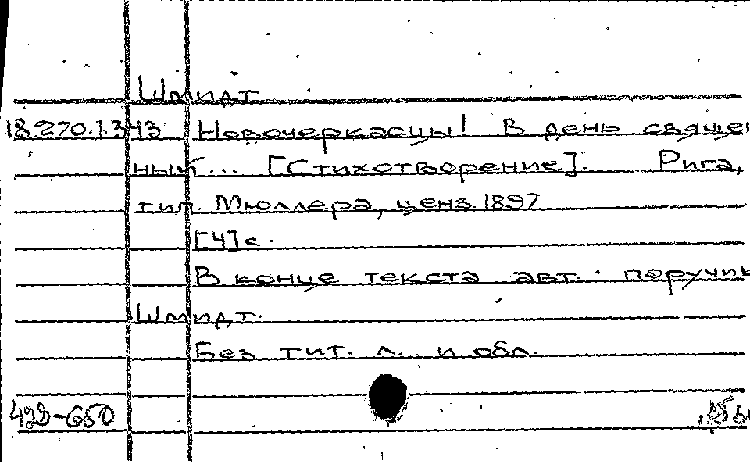 Шмидт
18.270.1.343 Новочеркасцы! В день священ
ный... [Стихотворение]. Рига,
тип. Мюллера, ценз. 1897
[4] с.
В конце текста авт.: поручик
Шмидт.
Без тит. л. и обл.
429-650